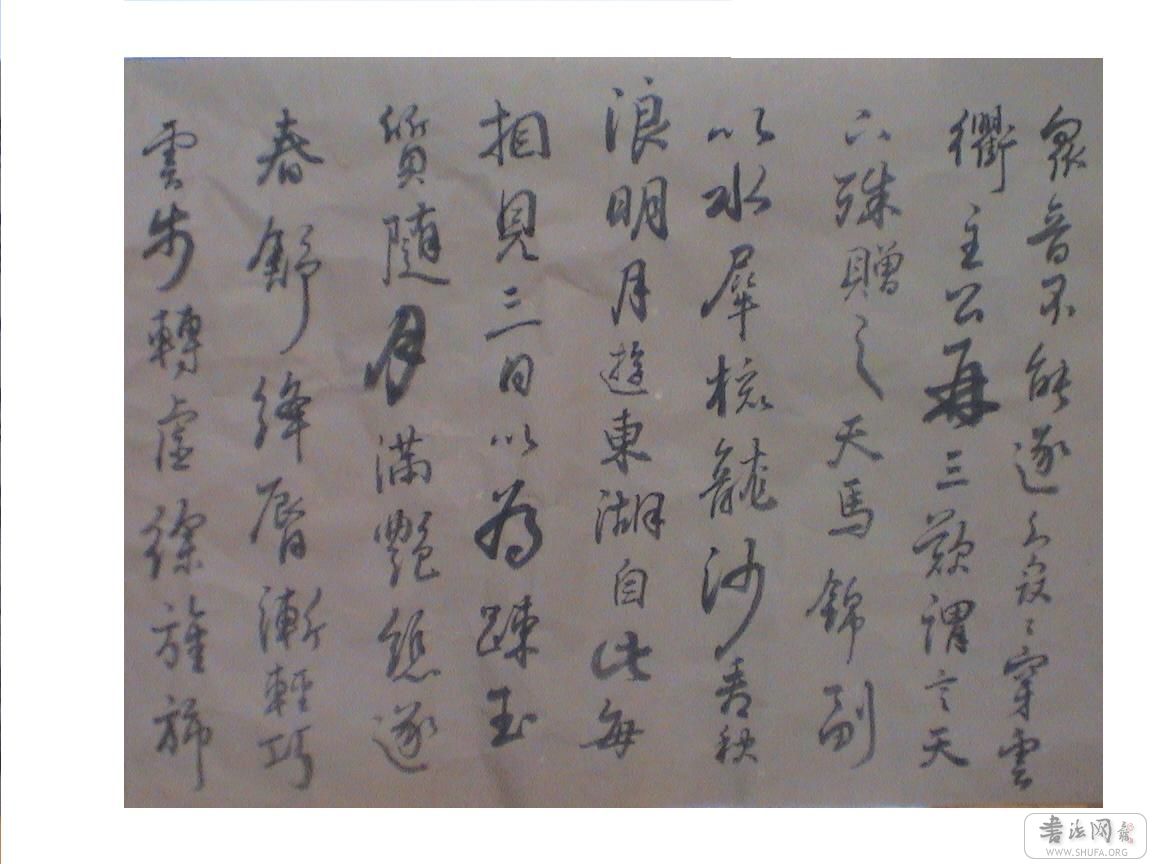 衆音不能逐裊〻穿雲
衢主公再三歎謂言天
下殊贈之天馬錦副
以水犀梳龍沙看秋
浪明月遊東湖自此每
相見三日以為踈玉
質隨月滿艷態逐
春舒絳脣漸輕巧
雲步轉虛徐旌旆
書法网
WWW.SHUFA.ORG